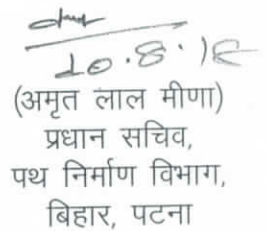 20.8.18
(अमृत लाल मीणा)
प्रधान सचिव,
पथ निर्माण विभाग,
बिहार, पटना